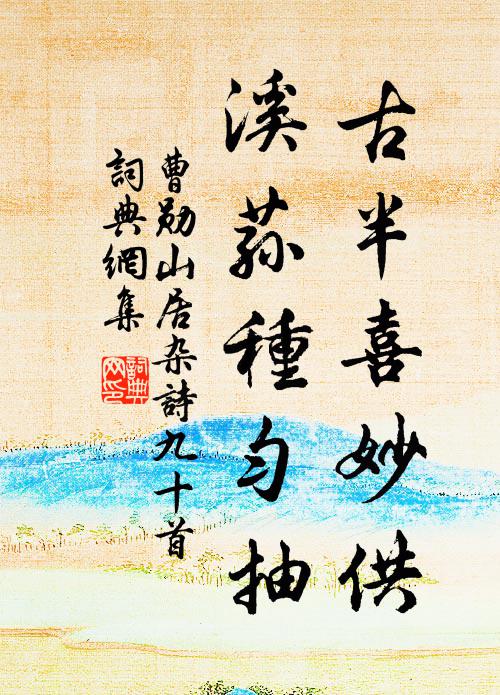 古半喜妙供
溪蓀種勻抽
曹勛山居杂詩九十首
詞典網集
詞典網印